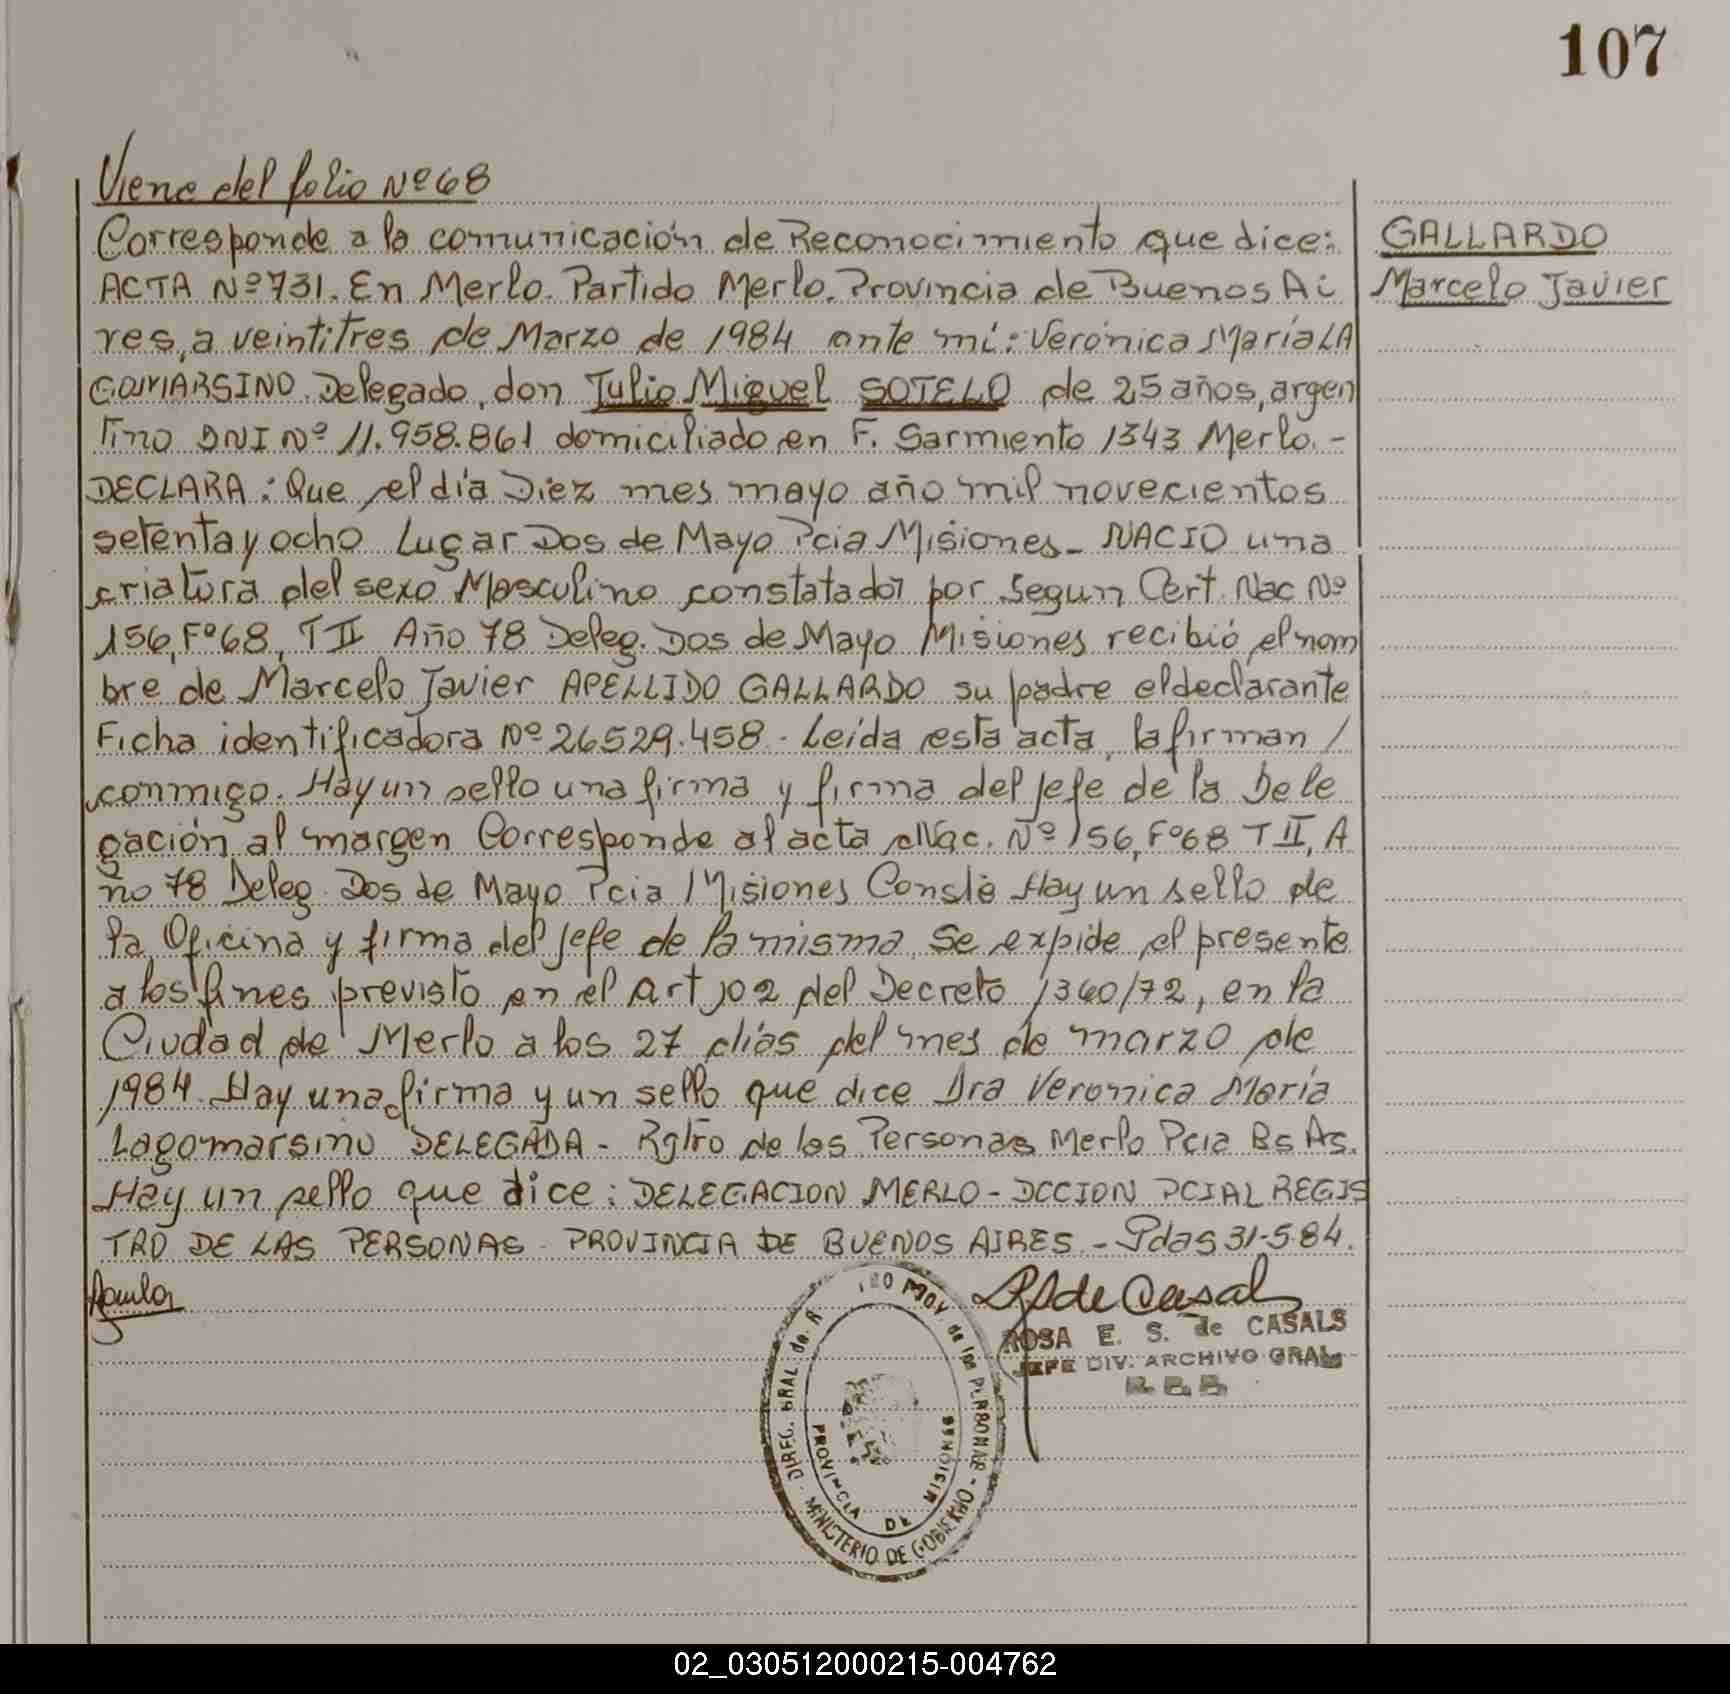 107
Viene del folio Nº 68
Corresponde a la comunicación de Reconocimiento que dice:
GALLARDO
ACTA Nº 731. En Merlo. Partido Merlo. Provincia de Buenos Ai
Marcelo Javier
res, a veintitres de Marzo de 1984 ante mí: Verónica María LA
GOMARSINO. Delegado, don Julio Miguel SOTELO de 25 años, argen
tino DNI Nº 11.958.861 domiciliado en F. Sarmiento 1343 Merlo.-
DECLARA: Que el día Diez mes mayo año mil novecientos
setenta y ocho Lugar Dos de Mayo Pcia Misiones - NACIO una
criatura del sexo Masculino constatado por Segun Cert. Nac Nº
156, Fº 68, T II Año 78 Deleg. Dos de Mayo Misiones recibió el nom
bre de Marcelo Javier APELLIDO GALLARDO su padre el declarante
Ficha identificadora Nº 26529.458. Leída esta acta, la firman /
conmigo. Hay un sello una firma y firma del Jefe de la Dele
gación al margen Corresponde al acta Nac. Nº 156, Fº 68 T II, A
no 78 Deleg. Dos de Mayo Pcia Misiones Conste Hay un sello de
la Oficina y firma del Jefe de la misma. Se expide el presente
a los fines previsto en el Art 102 del Decreto 1360/72, en la
Ciudad de Merlo a los 27 días del mes de marzo de
1984. Hay una firma y un sello que dice Dra Veronica María
Lagomarsino DELEGADA - Rgtro de las Personas Merlo Pcia Bs As.
Hay un sello que dice: DELEGACION MERLO - DCCION PCIAL REGIS
TRO DE LAS PERSONAS - PROVINCIA DE BUENOS AIRES. - Pdas 31-5-84.
ROSA E. S. de CASALS
JEFE DIV. ARCHIVO GRAL
DIREC. GRAL de PROV. de las PERSONAS - MINISTERIO DE GOBIERNO -
PROVINCIA DE MISIONES
02_030512000215-004762